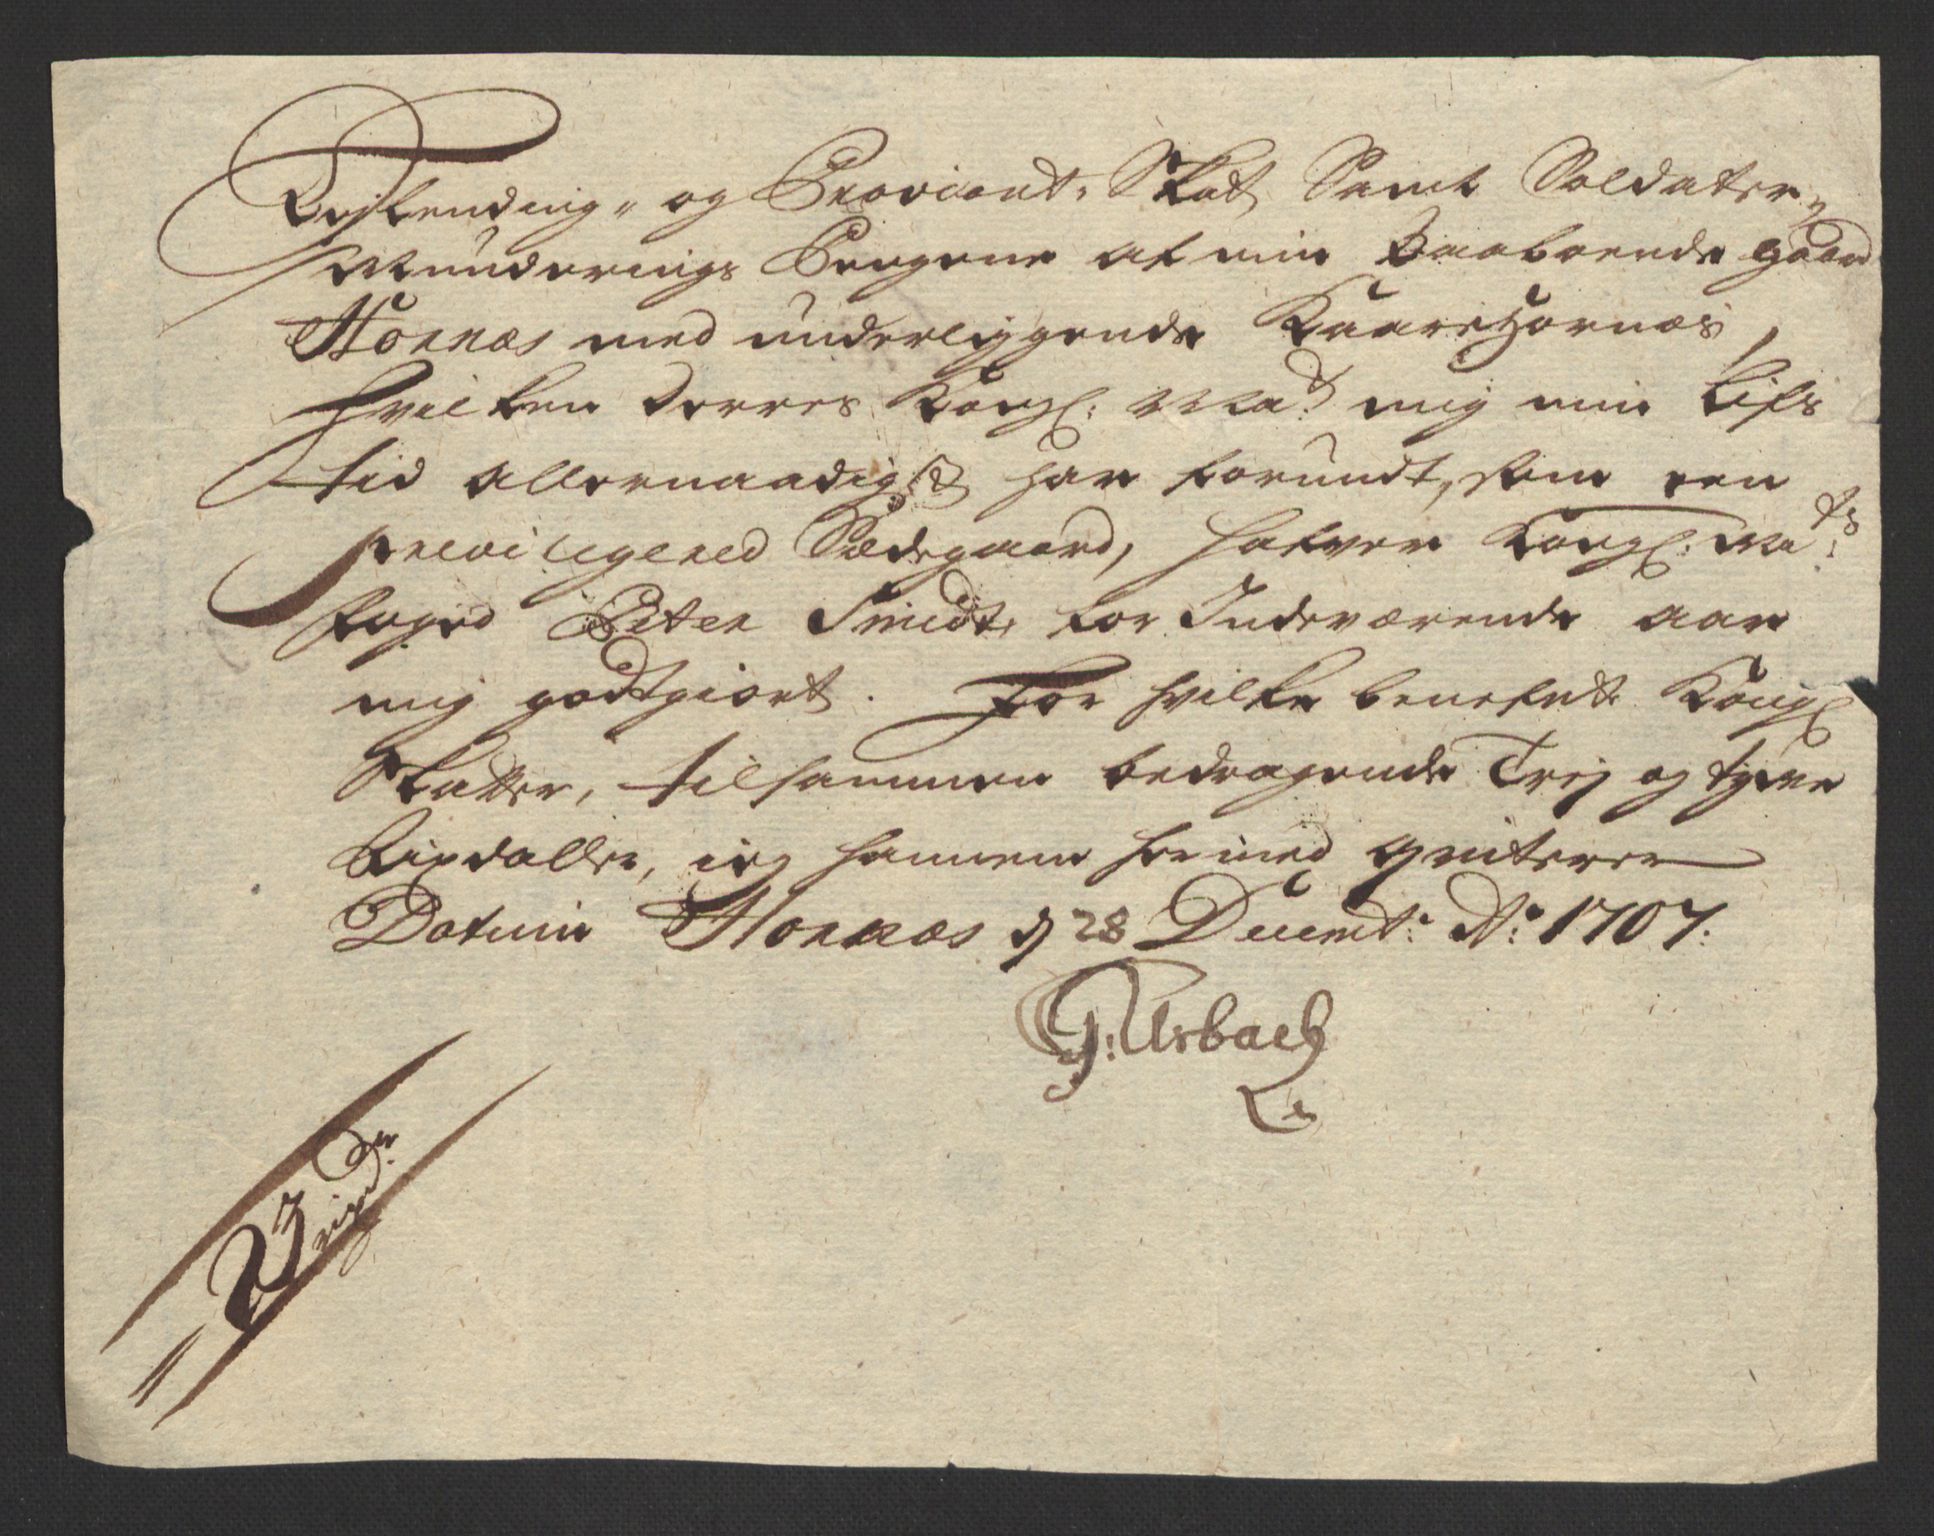 Leylending- og Proviant-Skat Samt Soldater-
Munderings Pengene af min Paaboende gaard
Hornæs med underliggende Kaarehornæs,
Hvilken Derres Kongl: Mad: mig min Lifs
tid allernaadigst har forundt, som een
previligered Sædegaard, hafver Kongl: Mats:
foged Peter Smidt for Indeværende aar
mig godtgiort. For hvilke benefnte Kongl
Skatter, tilsammen bedragende Trej og tyve
Rixdaller, ieg hannem hermed qviterer
Datum Hornæs d 28 Decembr: Ao: 1707:
G: Ursbach
23 rixdr